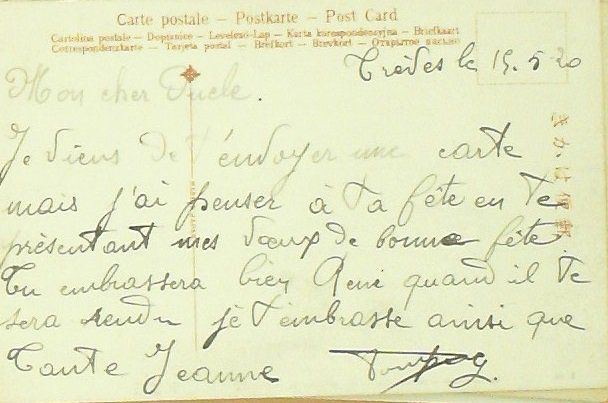 Carte postale – Postkarte – Post Card
Cartolina postale – Dopisnice – Levelező-Lap – Karta korespondencyjna – Briefkaart
Correspondenzkarte – Tarjeta postal – Brefkort – Brevkort – Открытое письмо
Trèbes le 15. 5 20
Mon cher Oncle.
Je viens de t'envoyer une carte
mais j'ai penser à ta fête en te
présentant mes vœux de bonne fête.
Tu embrassera bien René quand il te
sera rendu je t'embrasse ainsi que
Tante Jeanne